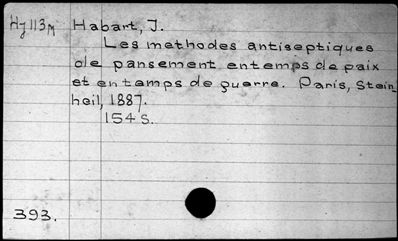 Hj113m Habart, J.
Les methodes antiseptiques
de pansement en temps de paix
et en temps de guerre. Paris, Stein_
heil, 1887.
154 S.
393.